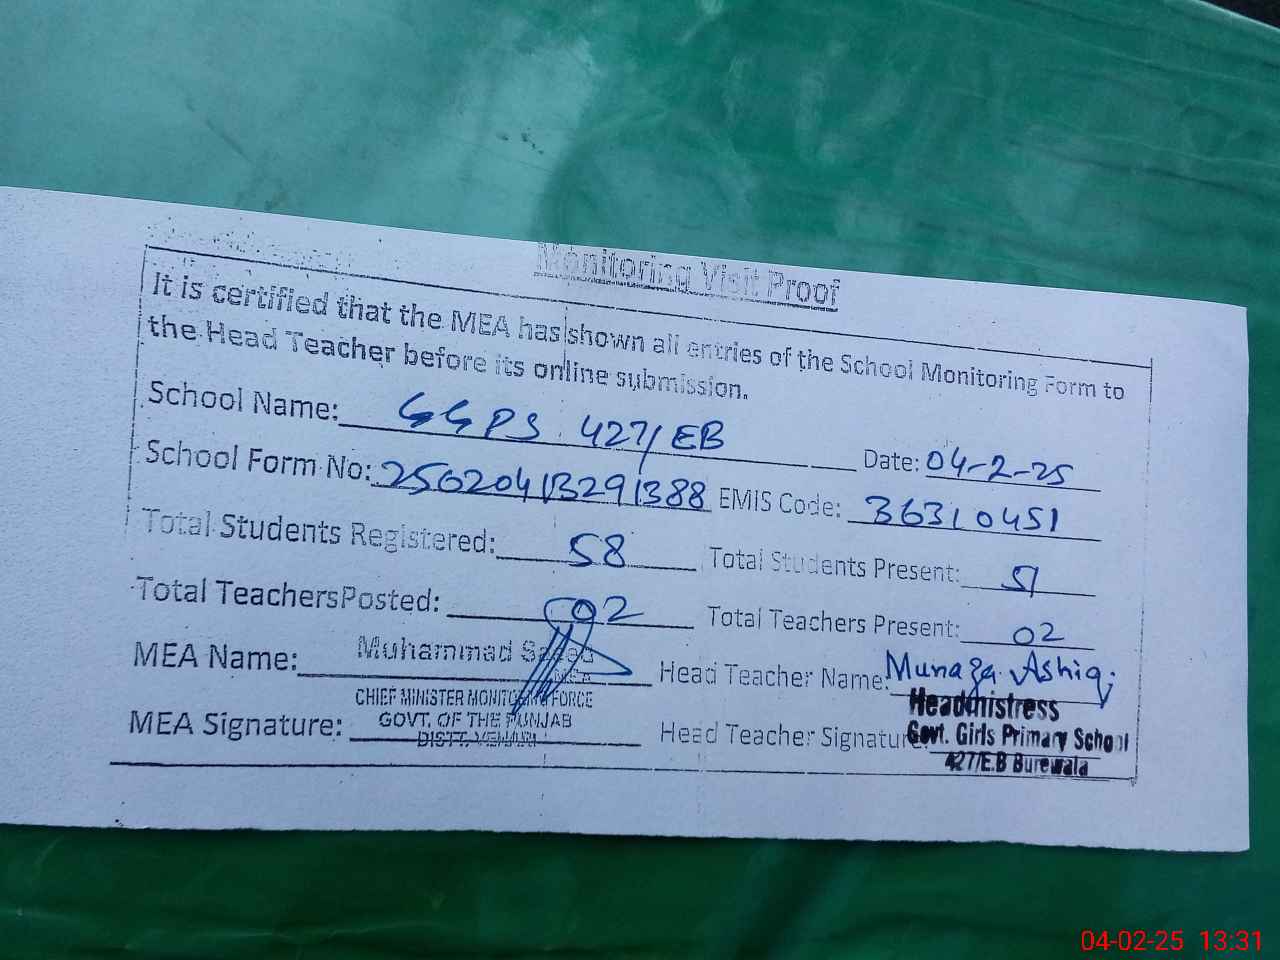 Monitoring Visit Proof
It is certified that the MEA has shown all entries of the School Monitoring Form to
the Head Teacher before its online submission.
School Name: GGPS 427/EB Date: 04-2-25
School Form No: 25020413291388 EMIS Code: 36310451
Total Students Registered: 58 Total Students Present: 51
Total TeachersPosted: 02 Total Teachers Present: 02
MEA Name: Muhammad Saeed Head Teacher Name: Munaza Ashiq.
MEA
CHIEF MINISTER MONITORING FORCE Headmistress
MEA Signature: GOVT. OF THE PUNJAB Head Teacher Signature: Govt. Girls Primary School
DISTT. VEHARI 427/E.B Burewala
04-02-25 13:31